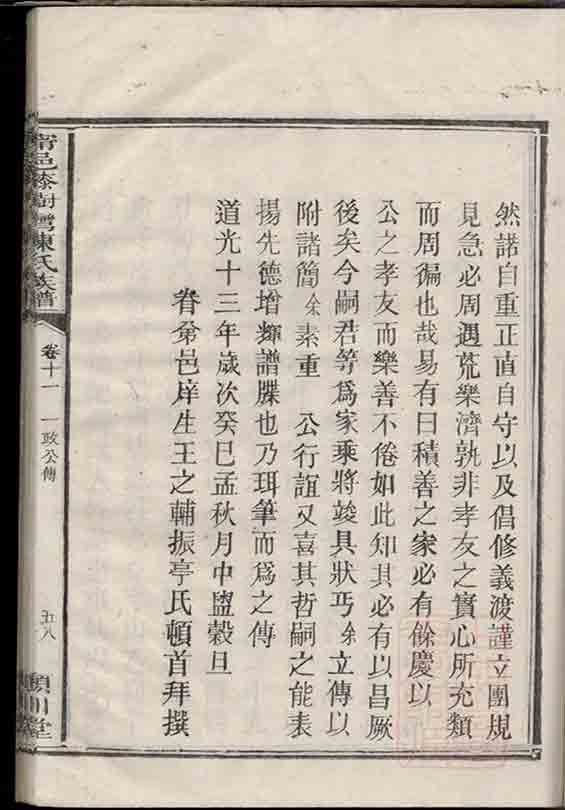 然諾自重正直自守以及倡修義渡謹立團規
見急必周遇荒樂濟孰非孝友之實心所充類
而周徧也哉易有曰積善之家必有餘慶以
公之孝友而樂善不倦如此知其必有以昌厥
後矣今嗣君等爲家乘將竣具狀丐余立傳以
附諸簡余素重　公行誼又喜其哲嗣之能表
揚先德增輝譜牒也乃珥筆而爲之傳
道光十三年歲次癸巳孟秋月中盥穀旦
眷弟邑庠生王之輔振亭氏頓首拜撰
甯邑漆樹灣陳氏族譜
卷十一
一政公傳
五八
潁川堂